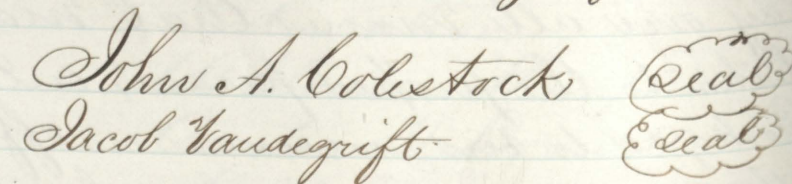 John A. Colestock seal
Jacob Vandegrift seal